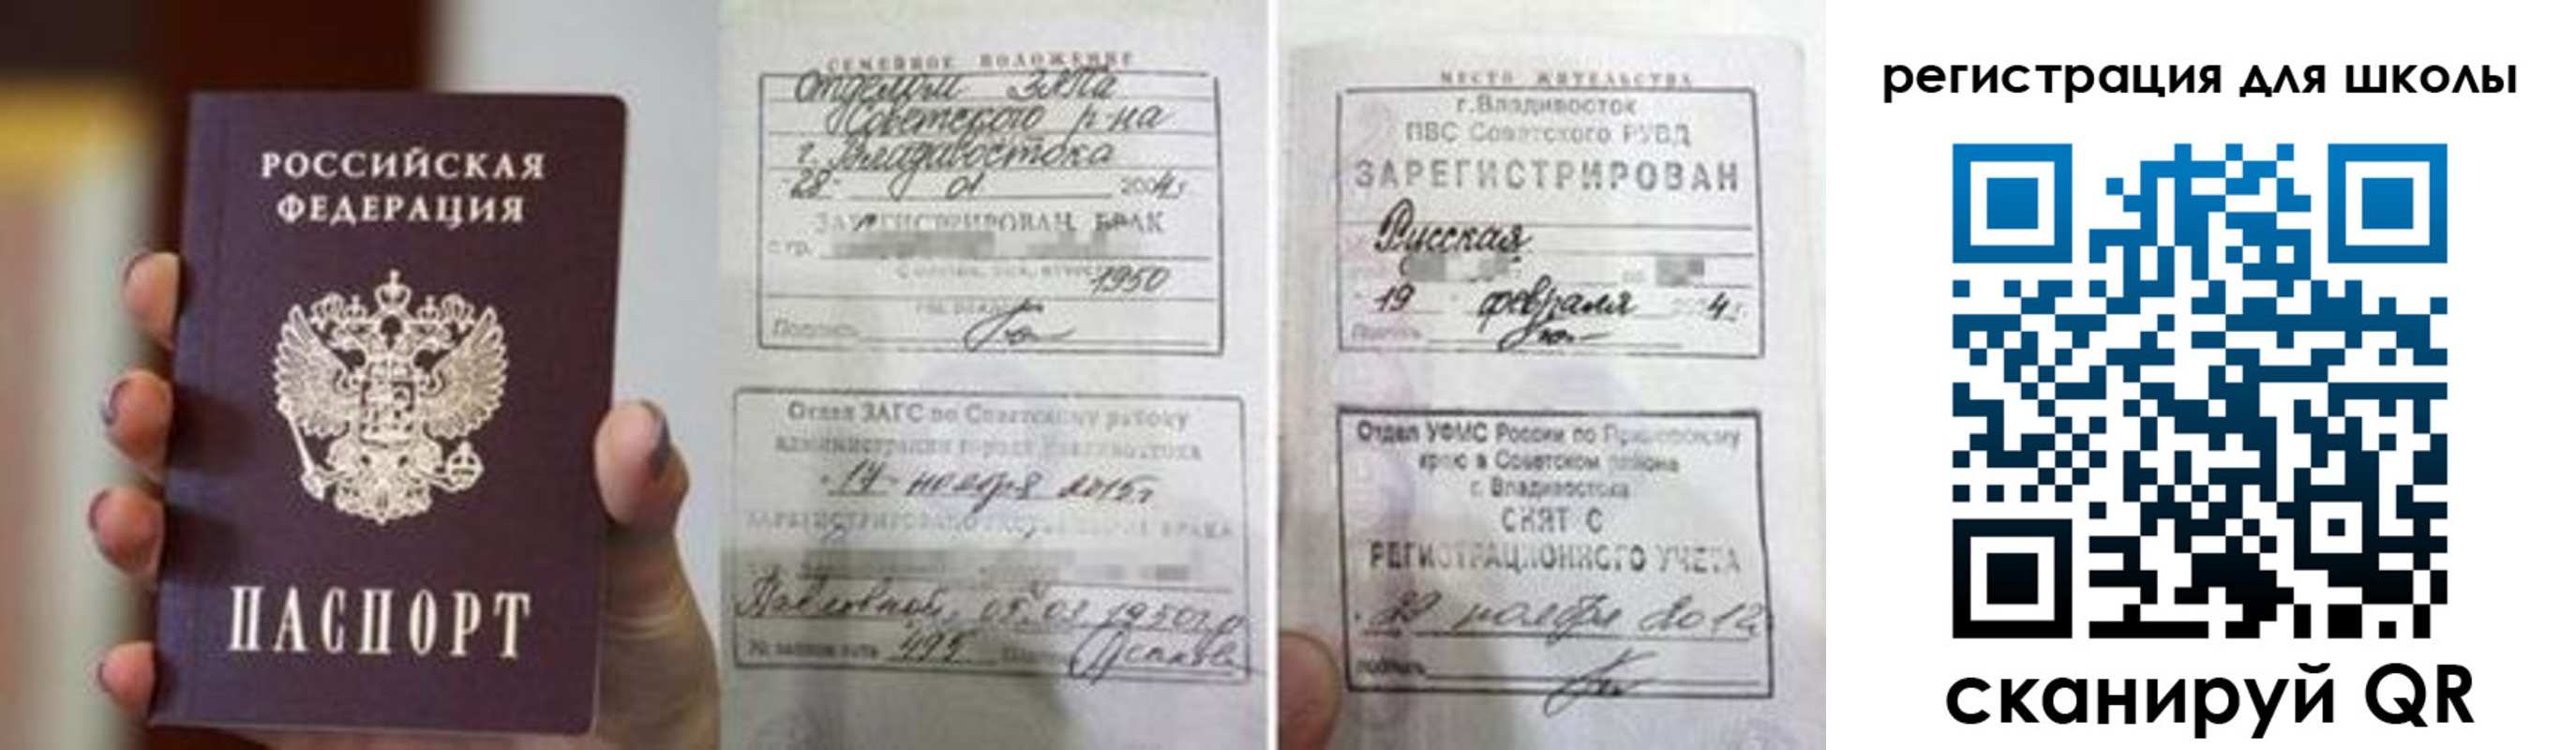 РОССИЙСКАЯ
ФЕДЕРАЦИЯ
ПАСПОРТ
СЕМЕЙНОЕ ПОЛОЖЕНИЕ
Отделом ЗАГСа
Советского р-на
г. Владивостока
"28" 01 2004 г.
ЗАРЕГИСТРИРОВАН БРАК
с гр.
1950
Подпись
Отдел ЗАГС по Советскому району
администрации города Владивостока
"17" ноября 2015 г.
Павловной, 05.03.1950 г.р
№ записи акта 495
МЕСТО ЖИТЕЛЬСТВА
г. Владивосток
ПВС Советского РУВД
ЗАРЕГИСТРИРОВАН
Русская
19 февраля 4 г.
Подпись
Отдел УФМС России по Приморскому
краю в Советском районе
г. Владивостока
СНЯТ С
РЕГИСТРАЦИОННОГО УЧЕТА
ноября 2012
подпись
регистрация для школы
сканируй QR